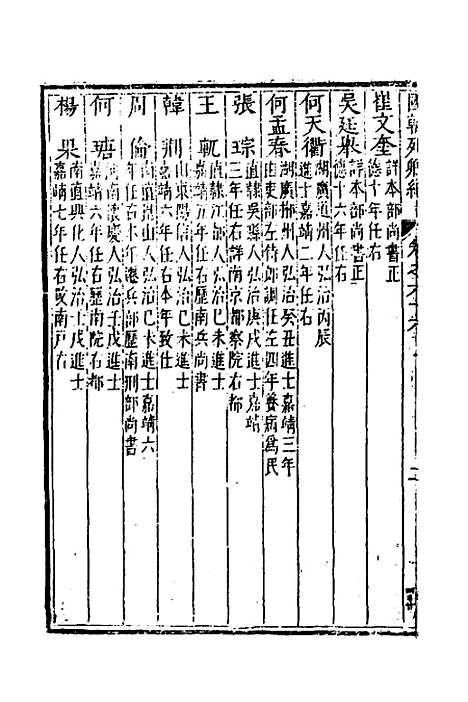 崔文奎詳本部尚書正
德十年任右
吳廷舉詳本部尚書正
德十六年任右
何天衢湖廣道州人弘治丙辰
進士嘉靖二年任右
何孟春湖廣郴州人弘治癸丑進士嘉靖三年
由吏部左侍郎調任左四年養病為民
張琮直隸吳縣人弘治庚戌進士嘉靖
三年任右詳南京都察院右都
王軏直隸江都人弘治己未進士
嘉靖五年任右歷南兵尚書
韓荆山東陽信人弘治己未進士
嘉靖六年任右本年致仕
周倫南直崑山人弘治己未進士嘉靖六
年任右本年選兵部歷南刑部尚書
何瑭河南懷慶人弘治壬戌進士
嘉靖六年任右歷南院右都
楊果南直興化人弘治壬戌進士
嘉靖七年任右改南戶右